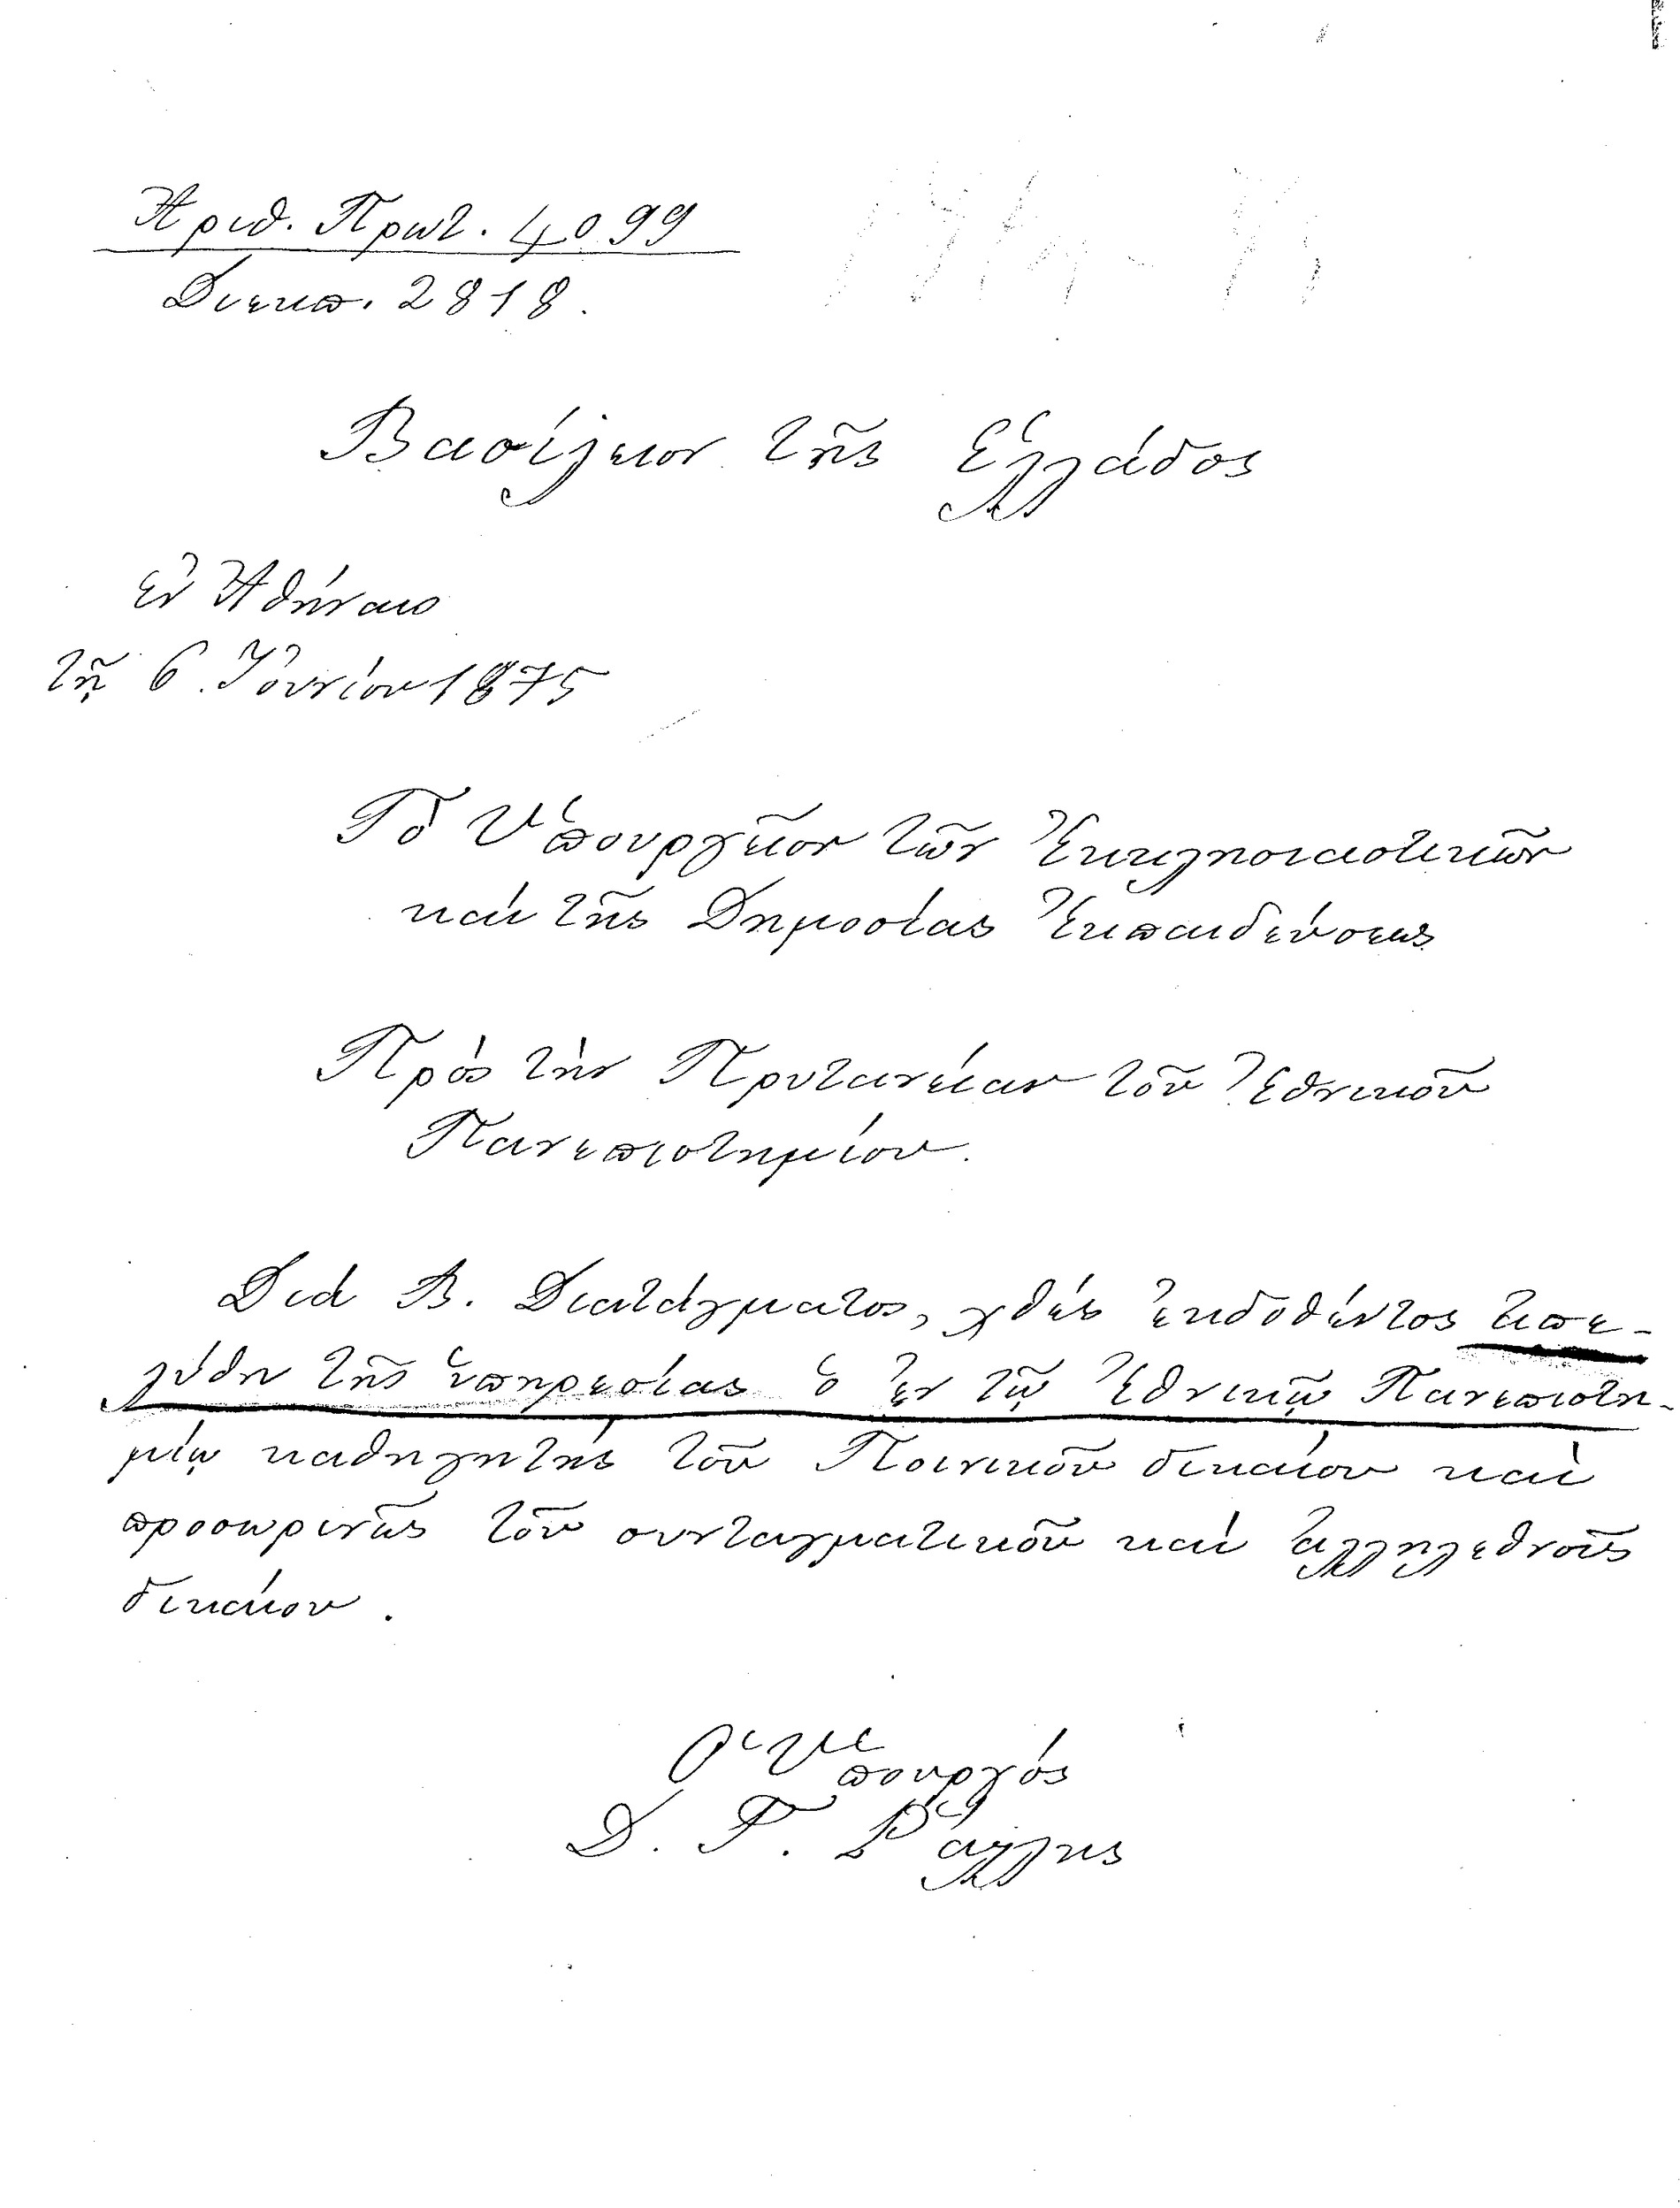 Ἀριθ. Πρωτ. 4099
Διεκπ. 2818.
Βασίλειον τῆς Ἑλλάδος
Ἐν Ἀθήναις
τῇ 6 Ἰουνίου 1875
Τὸ Ὑπουργεῖον τῶν Ἐκκλησιαστικῶν
καὶ τῆς Δημοσίας Ἐκπαιδεύσεως
Πρὸς τὴν Πρυτανείαν τοῦ Ἐθνικοῦ
Πανεπιστημίου.
Διὰ Β. Διατάγματος, χθὲς ἐκδοθέντος ἀπε-
λύθη τῆς ὑπηρεσίας ὁ ἐν τῷ Ἐθνικῷ Πανεπιστη-
μίῳ καθηγητὴς τοῦ Ποινικοῦ δικαίου καὶ
προσωρινῶς τοῦ συνταγματικοῦ καὶ ἀλληλεθνοῦς
δικαίου.
Ὁ Ὑπουργός
Δ. Γ. Ῥάλλης